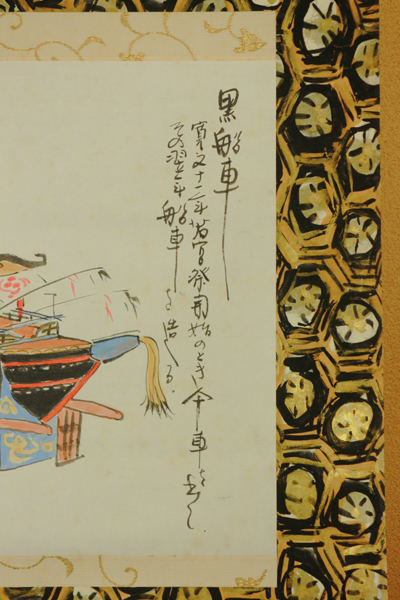 黒船車
寛文十二年若宮祭開始のとき車を出し
その翌年船車を造る